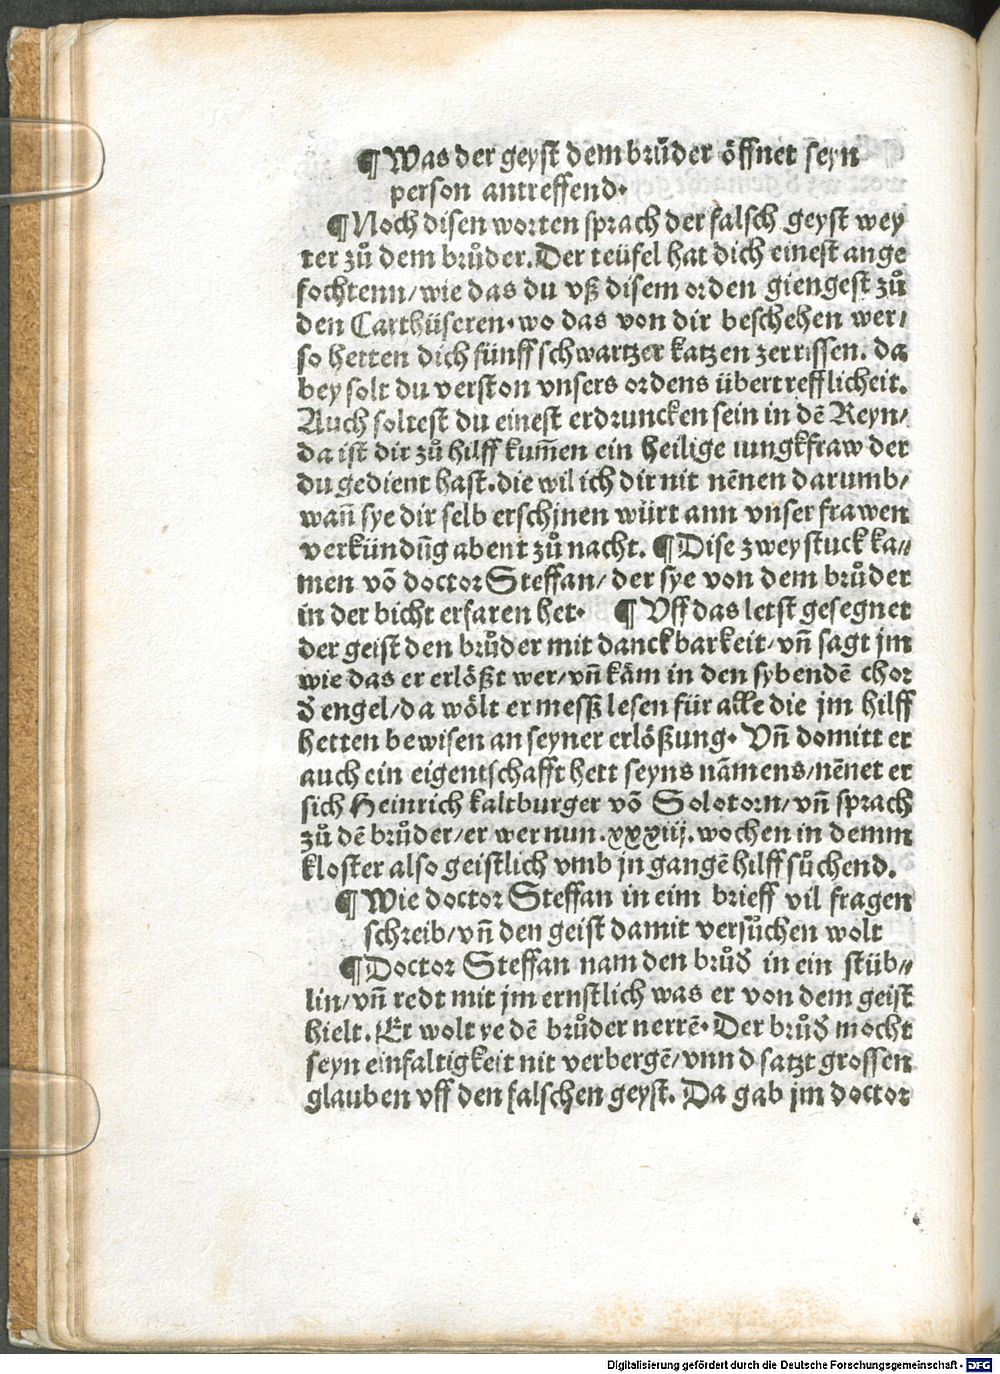 ¶ Was der geyst dem bruͦder öffnet seyn
person antreffend.
¶ Noch disen worten sprach der falsch geyst wey
ter zuͦ dem bruͦder. Der teüfel hat dich einest ange
fochtenn/wie das du vß disem orden giengest zuͦ
den Carthüseren. wo das von dir beschehen wer/
so hetten dich fünff schwartzer katzen zerrissen. da
bey solt du verston vnsers ordens übertrefflicheit.
Auch soltest du einest erdruncken sein in dē Reyn/
da ist dir zuͦ hilff kum̄en ein heilige iungkfraw der
du gedient hast. die wil ich dir nit nēnen darumb/
wan̄ sye dir selb erschjnen würt ann vnser frawen
verkündūg abent zuͦ nacht. ¶ Dise zwey stuck ka⸗
men vō doctor Steffan/ der sye von dem bruͦder
in der bicht erfaren het. ¶ Vff das letst gesegnet
der geist den bruͦder mit danckbarkeit/ vn̄ sagt jm
wie das er erlößt wer/vn̄ käm in den sybendē chor
d̕ engel/da wölt er mesß lesen für alle die jm hilff
hetten bewisen an seyner erlößung. Vn̄ domitt er
auch ein eigentschafft hett seyns nāmens/nēnet er
sich Heinrich kaltburger vō Solotorn/vn̄ sprach
zuͦ dē bruͦder/er wer nun .xxxiij. wochen in demm
kloster also geistlich vmb jn gangē hilff suͦchend.
¶ Wie doctor Steffan in eim brieff vil fragen
schreib/vn̄ den geist damit versuͦchen wolt
¶ Doctor Steffan nam den bruͦd̕ in ein stüb⸗
lin/vn̄ redt mit jm ernstlich was er von dem geist
hielt. Er wolt ye dē bruͦder nerrē. Der bruͦd̕ mocht
seyn einfaltigkeit nit verbergē/vnnd satzt grossen
glauben vff den falschen geyst. Da gab jm doctor
Digitalisierung gefördert durch die Deutsche Forschungsgemeinschaft - DFG